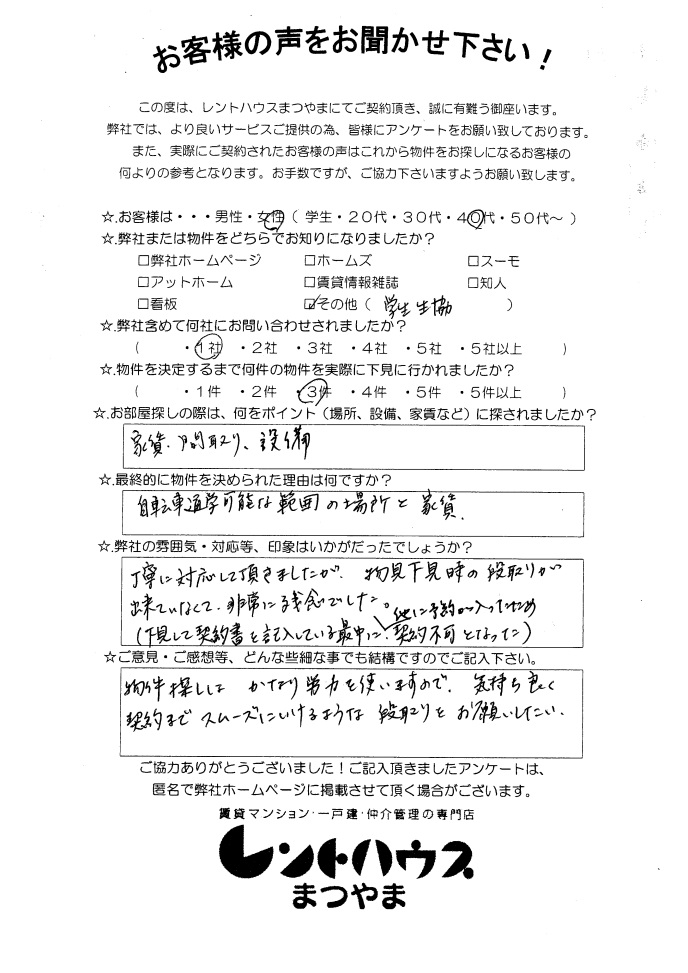 お客様の声をお聞かせ下さい！
この度は、レントハウスまつやまにてご契約頂き、誠に有難う御座います。
弊社では、より良いサービスご提供の為、皆様にアンケートをお願い致しております。
また、実際にご契約されたお客様の声はこれから物件をお探しになるお客様の
何よりの参考となります。お手数ですが、ご協力下さいますようお願い致します。
☆.お客様は・・・男性・女性（ 学生・２０代・３０代・４０代・５０代～ ）
☆.弊社または物件をどちらでお知りになりましたか？
□弊社ホームページ □ホームズ □スーモ
□アットホーム □賃貸情報雑誌 □知人
□看板 ☑その他（ 学生生協 ）
☆.弊社含めて何社にお問い合わせされましたか？
（ ・１社 ・２社 ・３社 ・４社 ・５社 ・５社以上 ）
☆.物件を決定するまで何件の物件を実際に下見に行かれましたか？
（ ・１件 ・２件 ・３件 ・４件 ・５件 ・５件以上 ）
☆.お部屋探しの際は、何をポイント（場所、設備、家賃など）に探されましたか？
家賃.間取り、設備
☆.最終的に物件を決められた理由は何ですか？
自転車通学可能な範囲の場所と家賃.
☆.弊社の雰囲気・対応等、印象はいかがだったでしょうか？
丁寧に対応して頂きましたが、物見下見時の段取りが
出来ていなくて、非常に残念でした。
他に予約が入ったため
（下見して契約書を記入している最中に、契約不可となった）
☆ご意見・ご感想等、どんな些細な事でも結構ですのでご記入下さい。
物件探しは かなり労力を使いますので、気持ち良く
契約まで スムーズにいけるような 段取りを お願いしたい.
ご協力ありがとうございました！ご記入頂きましたアンケートは、
匿名で弊社ホームページに掲載させて頂く場合がございます。
賃貸マンション・一戸建・仲介管理の専門店
レントハウス
まつやま